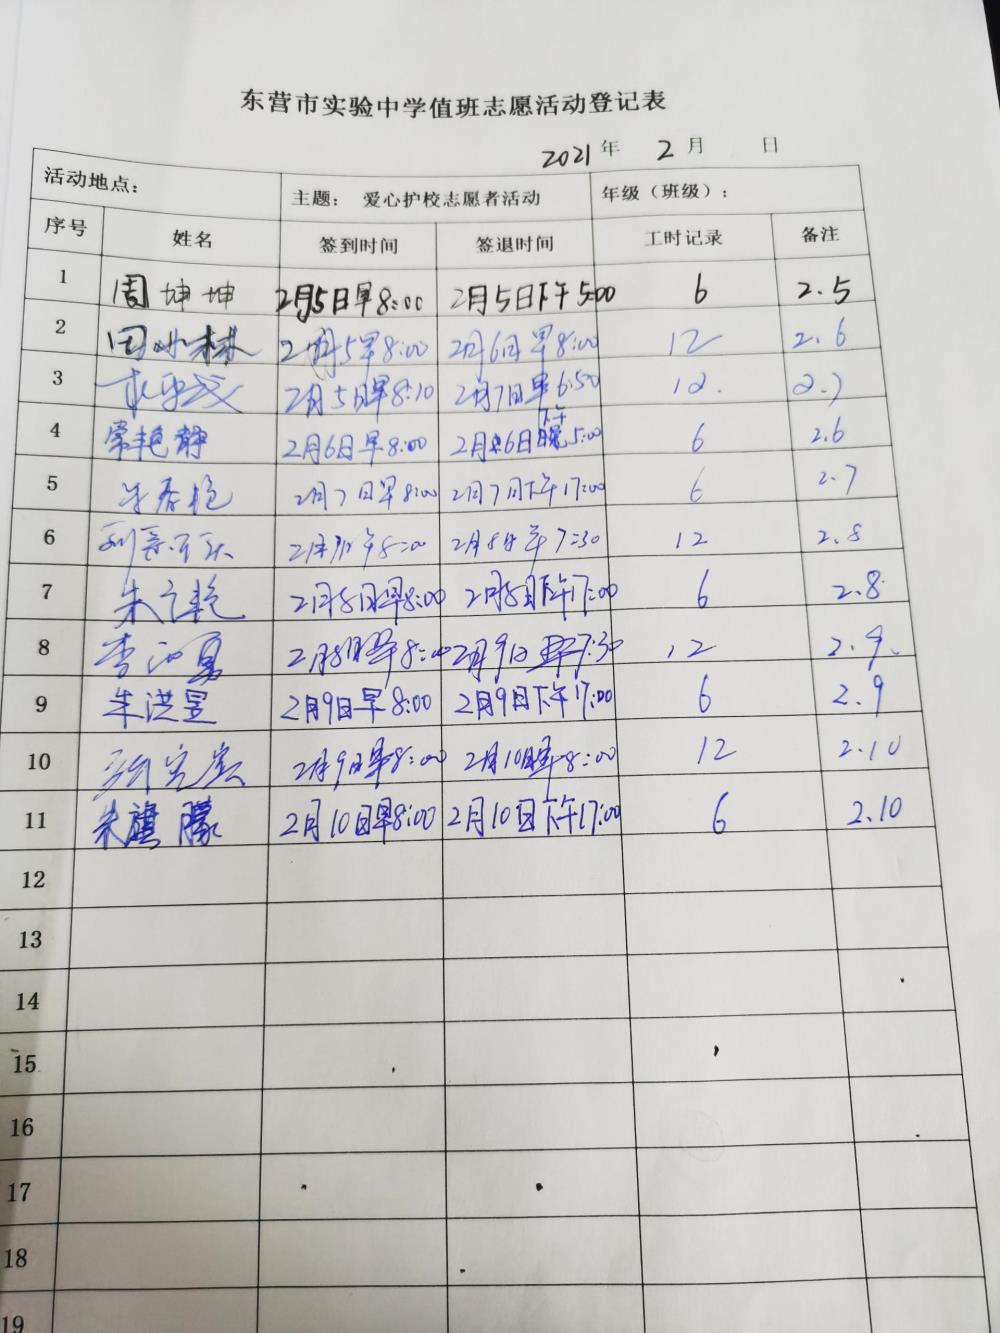 东营市实验中学值班志愿活动登记表
2021年 2月 日
活动地点： 主题： 爱心护校志愿者活动 年级（班级）：
序号 姓名 签到时间 签退时间 工时记录 备注
1 周坤坤 2月5日早8:00 2月5日下午5:00 6 2.5
2 田冰林 2月5早8:00 2月6日早8:00 12 2.6
3 2月5日早8:10 2月7日早6:50 12. 2.7
4 常艳静 2月6日早8:00 2月6日下午5:00 6 2.6
5 2月7日早8:00 2月7日下午17:00 6 2.7
6 2月 8:00 2月8日 7:30 12 2.8
7 朱 艳 2月8日早8:00 2月8日下午17:00 6 2.8
8 李 勇 2月8日早8:00 2月9日 7:30 12 2.9.
9 朱洪昱 2月9日早8:00 2月9日下午17:00 6 2.9
10 2月9日早8:00 2月10日早8:00 12 2.10
11 朱旗 2月10日早8:00 2月10日下午17:00 6 2.10
12
13
14
15
16
17
18
19